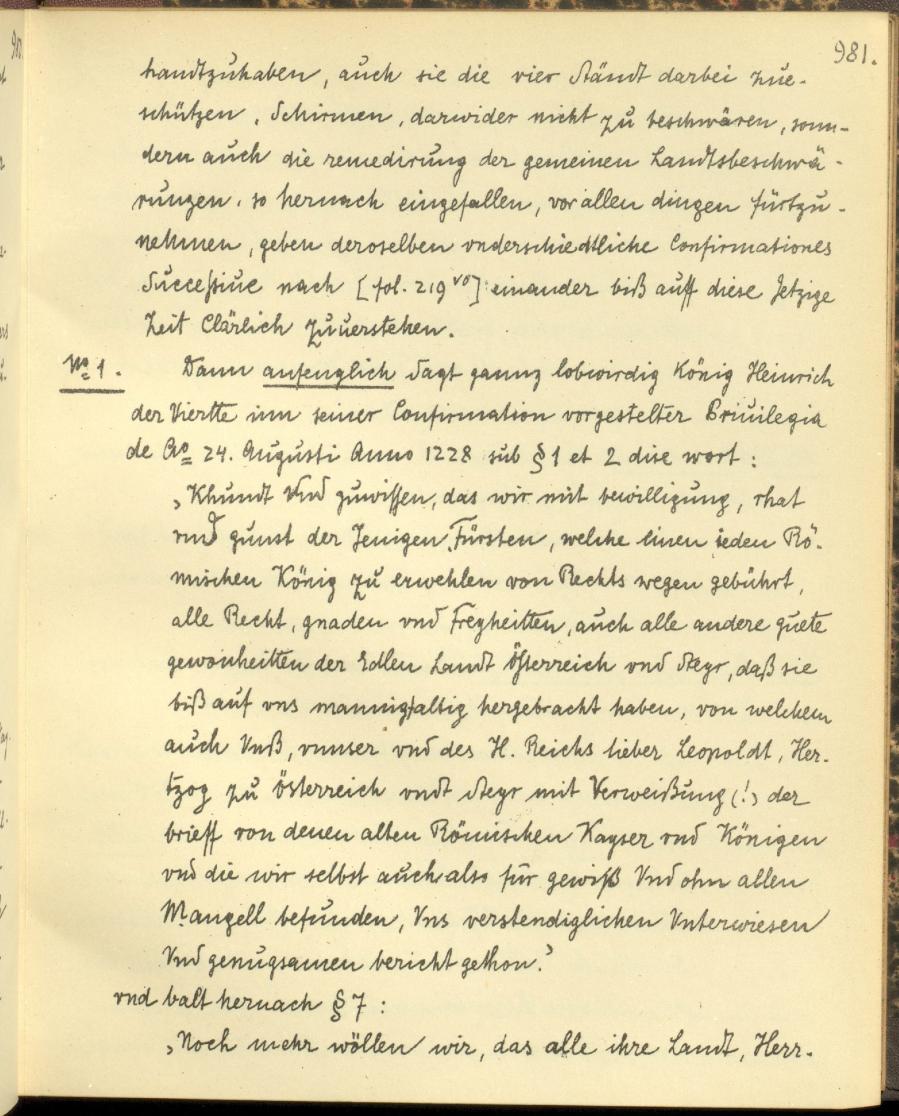 981.
handtzuhaben, auch sie die vier Ständt darbei zue-
schützen, Schirmen, darwider nicht zu beschwären, sonn-
dern auch die remedirung der gemeinen Landtsbeschwä-
rungen, so hernach eingefallen, vor allen dingen fürtzu-
nehmen, geben deroselben vnderschiedtliche Confirmationes
Successiue nach [fol. 219 vo] einander biß auff diese Jetzige
Zeit Clärlich zuuerstehen.
No 1. Dann anfenglich Sagt gannz lobwirdig König Heinrich
der Viertte inn seiner Confirmation vorgestelter Priuilegia
de Ao 24. Augusti Anno 1228 sub § 1 et 2 dise wort:
„Khundt Vnd zuwissen, das wir mit bewilligung, rhat
vnd gunst der Jenigen Fürsten, welche einen ieden Rö-
mischen König zu erwehlen von Rechts wegen gebührt,
alle Recht, gnaden vnd Freyheitten, auch alle andere guete
gewonheitten der Edlen Landt Österreich vnd Steyr, daß sie
biß auf vns mannigfaltig hergebracht haben, von welchem
auch Vnß, vnnser vnd des H. Reichs lieber Leopoldt, Her-
tzog zu Österreich vndt Steyr mit Verweißung (!) der
brieff von denen alten Römischen Kayser vnd Königen
vnd die wir selbst auch also für gewiß Vnd ohn allen
Mangell befunden, Vns verstendiglichen Vnterwiesen
Vnd genugsamen bericht gethon."
vnd balt hernach § 7:
„Noch mehr wöllen wir, das alle ihre Landt, Herr-